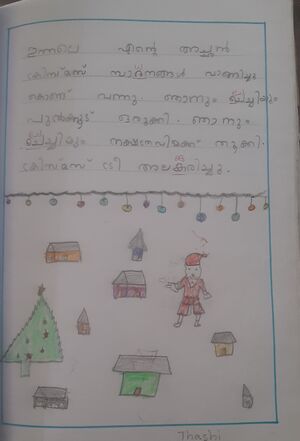 ഇന്നലെ എന്റെ അച്ഛൻ
ക്രിസ്മസ് സാധനങ്ങൾ വാങ്ങിച്ചു
കൊണ്ട് വന്നു. ഞാനും ചേച്ചിയും
പുൽക്കൂട് ഒരുക്കി. ഞാനും
ചേച്ചിയും നക്ഷത്രവിളക്ക് തൂക്കി.
ക്രിസ്മസ് ട്രീ അലങ്കരിച്ചു.
Thashi